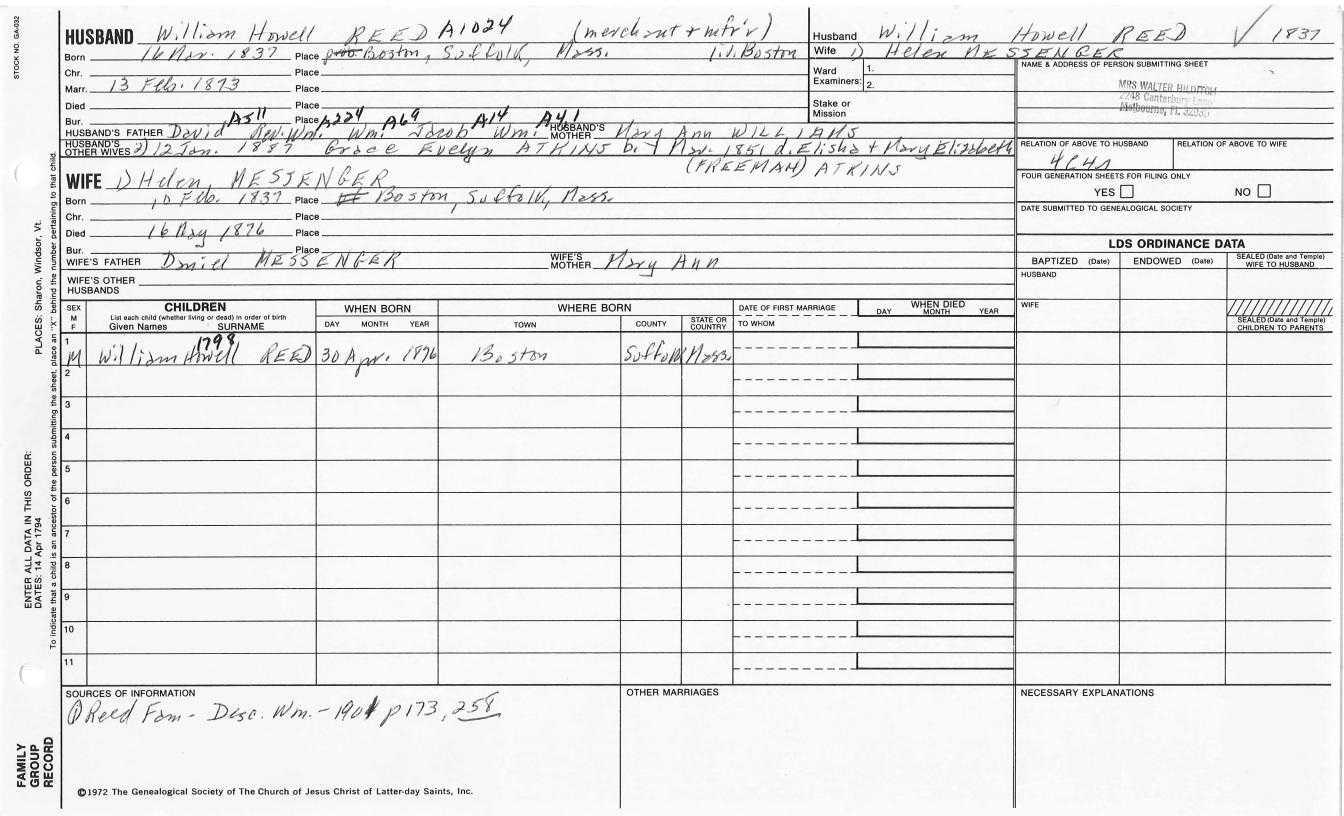 STOCK NO. GA-032
HUSBAND William Howell REED A1024 (merchant + mfr'r)
Born 16 Mar. 1837 Place Boston, Suffolk, Mass. i.i. Boston
Chr. Place
Marr. 13 Feb. 1873 Place
Died Place
Bur. Place
A511 A224 A69 A14 A41
HUSBAND'S FATHER David Rev. Wm. Wm. Jacob Wm. HUSBAND'S MOTHER Mary Ann WILLIAMS
HUSBAND'S OTHER WIVES 2) 12 Jan. 1887 Grace Evelyn ATKINS b. Mar. 1851 d. Elisha + Mary Elizabeth
(FREEMAN) ATKINS
WIFE 1) Helen MESSENGER
Born 10 Feb. 1837 Place Boston, Suffolk, Mass.
Chr. Place
Died 16 May 1876 Place
Bur. Place
WIFE'S FATHER Daniel MESSENGER WIFE'S MOTHER Mary Ann
WIFE'S OTHER HUSBANDS
Husband William Howell REED 1837
Wife 1) Helen MESSENGER
Ward Examiners: 1.
2.
Stake or Mission
NAME & ADDRESS OF PERSON SUBMITTING SHEET
MRS WALTER HILDITCH
2248 Canterbury Lane
Melbourne, FL 32935
RELATION OF ABOVE TO HUSBAND RELATION OF ABOVE TO WIFE
4C4R
FOUR GENERATION SHEETS FOR FILING ONLY
YES NO
DATE SUBMITTED TO GENEALOGICAL SOCIETY
LDS ORDINANCE DATA
BAPTIZED (Date) ENDOWED (Date) SEALED (Date and Temple) WIFE TO HUSBAND
HUSBAND
WIFE
SEALED (Date and Temple) CHILDREN TO PARENTS
SEX M F
CHILDREN
List each child (whether living or dead) in order of birth
Given Names SURNAME
WHEN BORN
DAY MONTH YEAR
WHERE BORN
TOWN COUNTY STATE OR COUNTRY
DATE OF FIRST MARRIAGE
TO WHOM
WHEN DIED
DAY MONTH YEAR
1798
1 M William Howell REED 30 Apr. 1876 Boston Suffolk Mass.
2
3
4
5
6
7
8
9
10
11
SOURCES OF INFORMATION
① Reed Fam - Desc. Wm. - 1901 p 173, 258
OTHER MARRIAGES
NECESSARY EXPLANATIONS
©1972 The Genealogical Society of The Church of Jesus Christ of Latter-day Saints, Inc.
FAMILY GROUP RECORD
ENTER ALL DATA IN THIS ORDER:
DATES: 14 Apr 1794 PLACES: Sharon, Windsor, Vt.
To indicate that a child is an ancestor of the person submitting the sheet, place an "X" behind the number pertaining to that child.